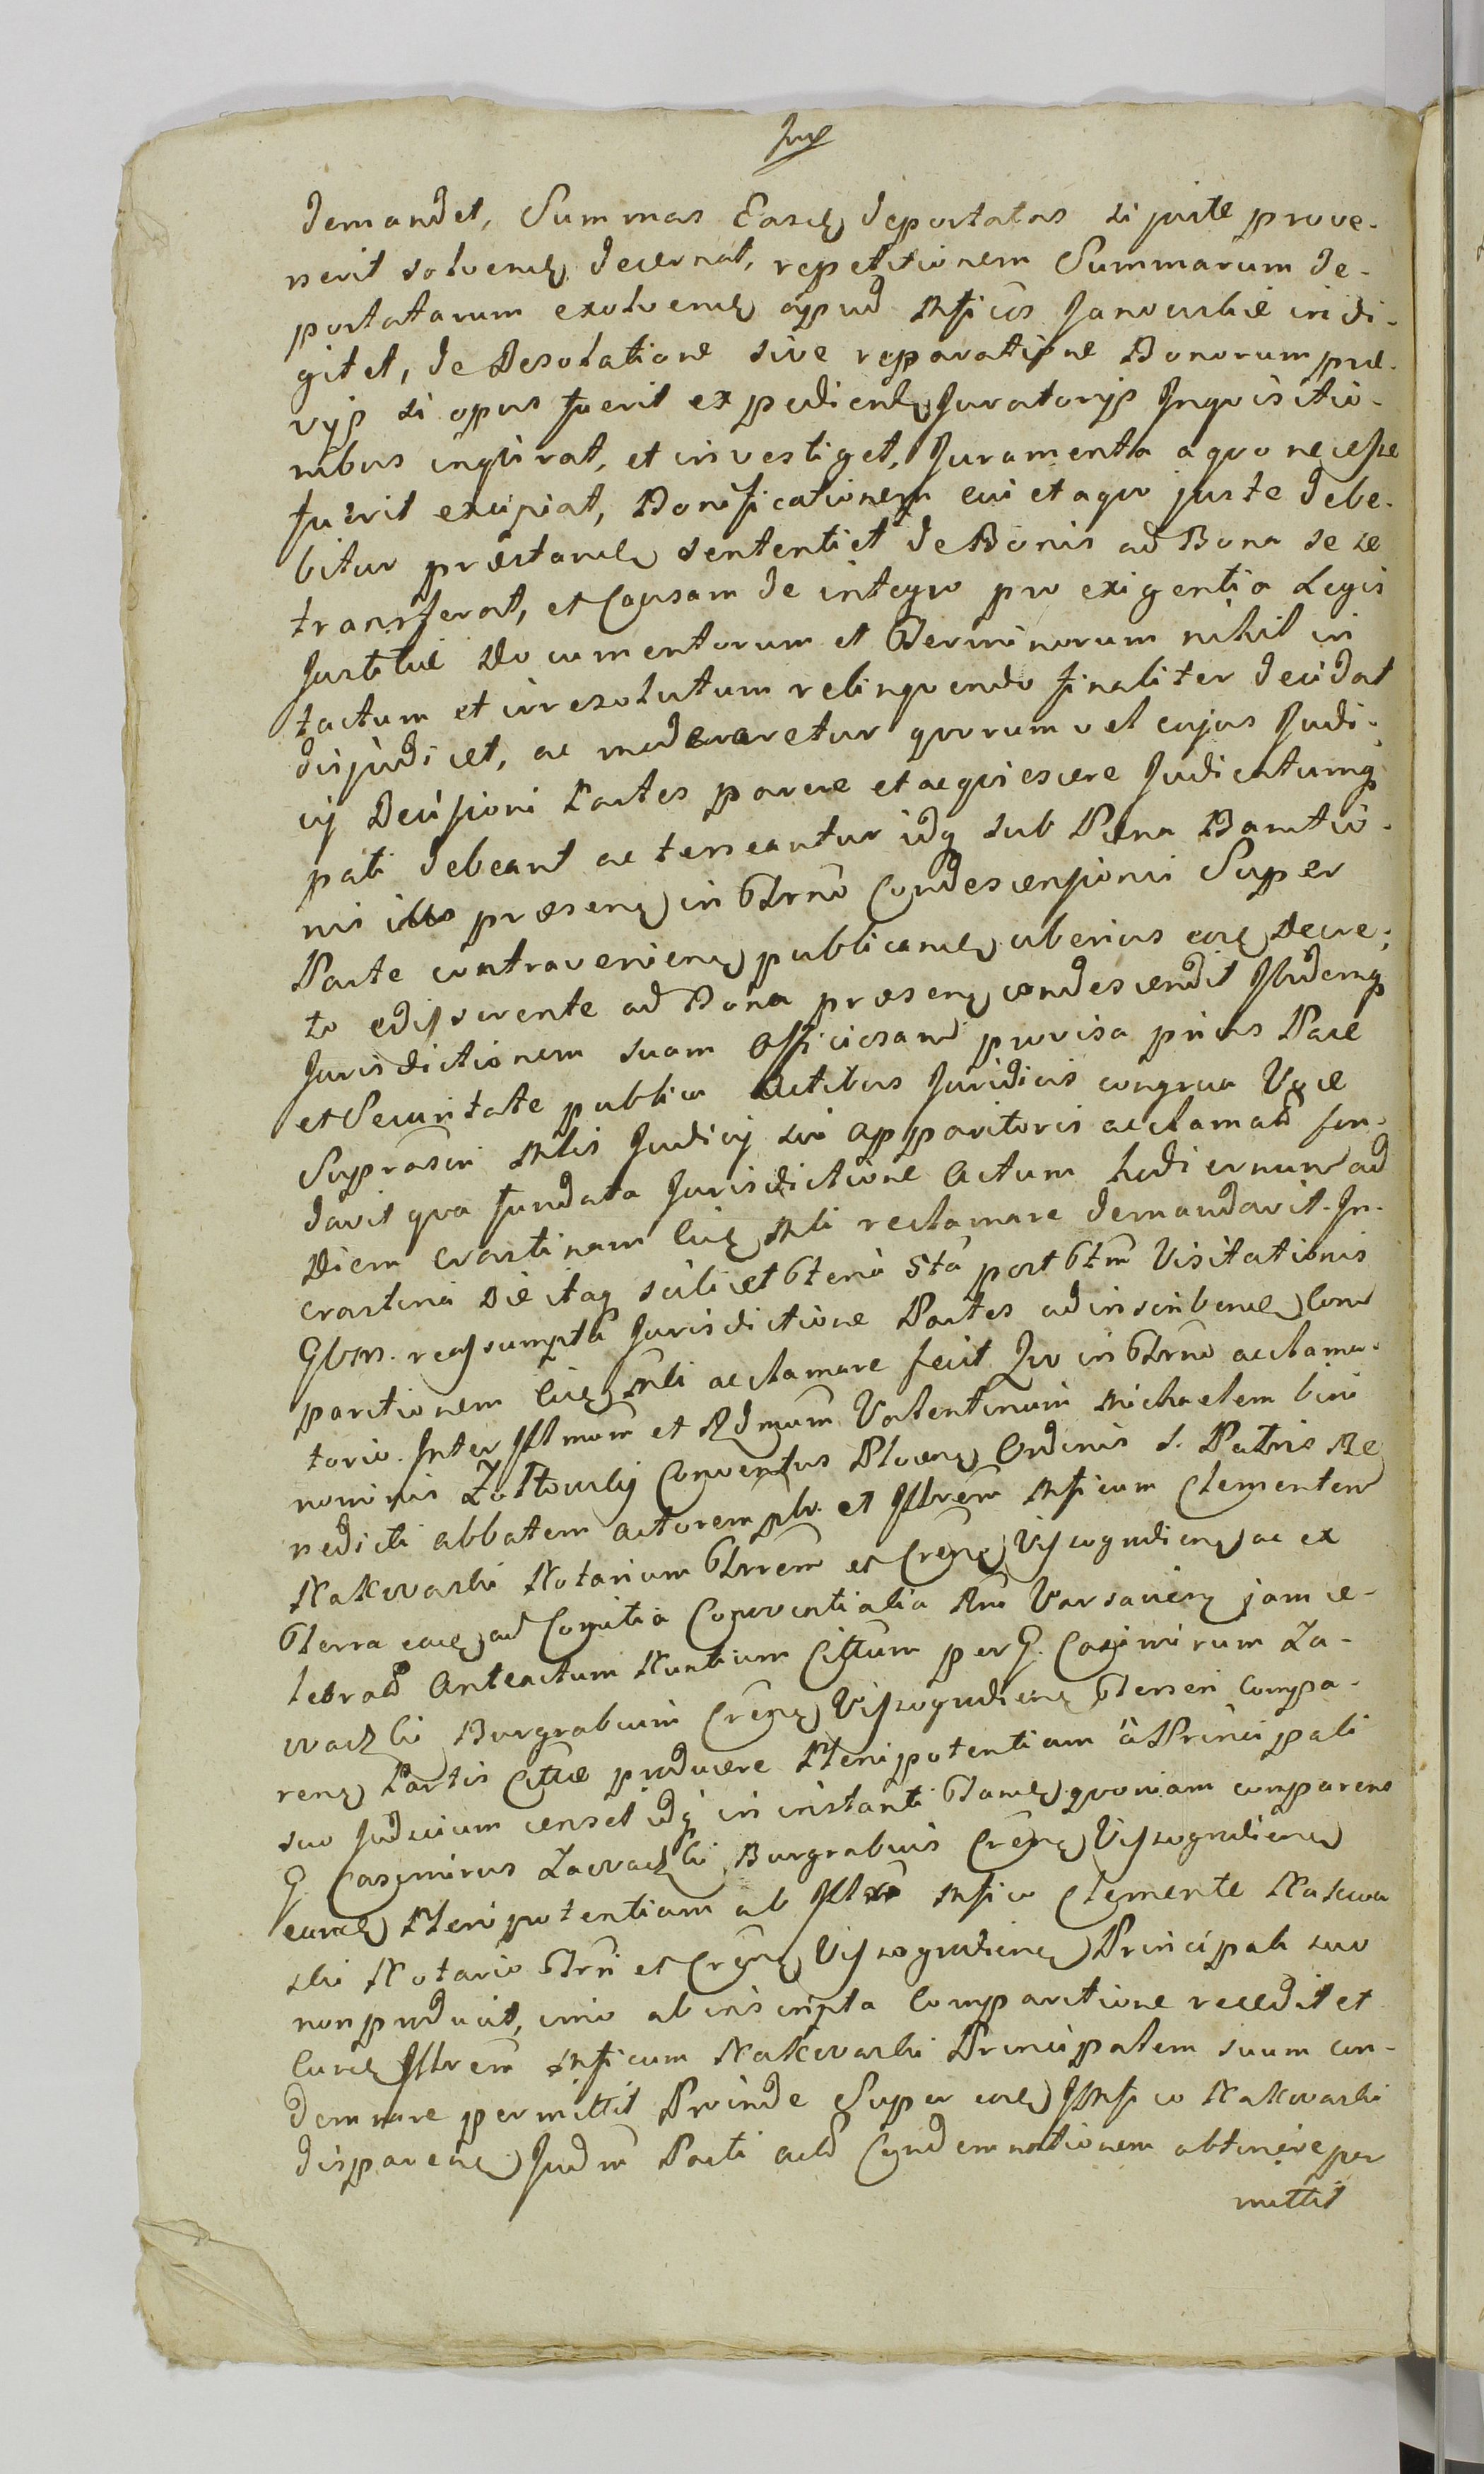 demandet, Summas Easq deportatas si juste prove-
nerit solvenq decernat, repetitionem Summarum de-
portatarum exolvenq apud Mficos Janowskie indi-
git et, de Desolatione sive reparatione Bonorum præ-
vijs si opus fuerit expedienq Juratorijs Inquisitio-
nibus inquirat, et investiget, Juramenta a quo necesse
fuerit excipiat, Bonificationem cui et a quo juste debe-
bitur præstanq sententiet de Bonis ad Bona se se
transferat, et Causam de integro pro exigentia Legis
Justitiæ Documentorum et Terminorum nihil in
tactum et irresolutum relinquendo finaliter decidat
disjudicet, ac moderaretur quorum vel cujus Judi-
cij Decisioni Partes parere et acquiescere Judicatumq
pati debeant ac teneantur idq sub Pœna Bannitio-
nis præsenq in Trno Condescensionis Super
Parte contravenienq publicanq uberius eoq Decre-
to edisserente ad Bona præsenq condescendit Ibidemq
Jurisdictionem suam Officiosam provisa prius Pace
et Securitate publica Actibus Juridicis congrua Voce
Suprascri Mlis Judicij sui Apparitoris acclamad fun-
davit qua fundata Jurisdictione Actum hodiernum ad
Diem crastinam Eiq Mli reclamare demandavit. In
crastina Die itaq scilicet feria 5ta post ftm Visitationis
Gbsm. reassumpta Jurisdictione Partes ad inscribenq Com
paritionem Eiq Mli acclamare fecit Quo in Trno acclama-
torio. Inter Illmum et Rdmum Valentinum Michaelem bini
nominis Żółtowskij Conventus Plocenq Ordinis S. Patris Be
nedicti abbatem Actorem ptr. et Illrem Mficum Clementem
Nakwaski Notarium Trrem et Crenq Vyszogrudienq ac ex
Terra eaq ad Comitia Conventialia Rni Varsavienq jam ce-
lebrad Anteactum Nuntium Cittum per G. Casimirum Za-
wadzki Burgrabium Crenq Vyszogrudienq Terseri Compa-
renq Partis Cittæ producere Plenipotentiam à Principali
suo Judicium censet idq in instanti Stanq quoniam comparens
G. Casimirus Zawadzki Burgrabius Crenq Vyszogrudienq
eanq Plenipotentiam ab Illri Mfico Clemente Nakwa
ski Notario Trri et Crenq Vyszogrudienq Principali suo
non producit, imo ab inscripta Comparitione recedit et
Eunq Illrem Mficum Nakwaski Principalem suum con-
demnare permittit Proinde Super eoq Mfico Nakwaski
disparenq Judm Parti actd Condemnationem obtinere per
mittit